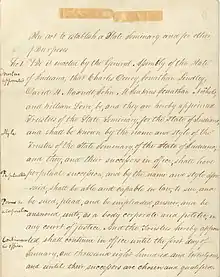 An act to establish a State Seminary and for other
purposes
Sec 1 Be it enacted by the General Assembly of the State
of Indiana, that Charles Dewey, Jonathan Lindley,
David H. Maxwell, John M. Jenkins, Jonathan Nichols
and William Lowe, be, and they are hereby appointed
Trustees of the State Seminary, for the State of Indiana
Style and shall be known by the name and style of the
Trustees of the State Seminary of the State of Indiana,
and they, and their successors in office, shall have
Perpetuity perpetual succession, and by the name and style afore
said, shall be able and capable in law, to sue and
be sued, plead and be impleaded, answer and be
answered unto, as a body corporate and politic, in
any court of justice. And the Trustees hereby appoint
ed, shall continue in office until the first day of
January, one thousand eight hundred and twenty one
and until their successors are chosen and qualified